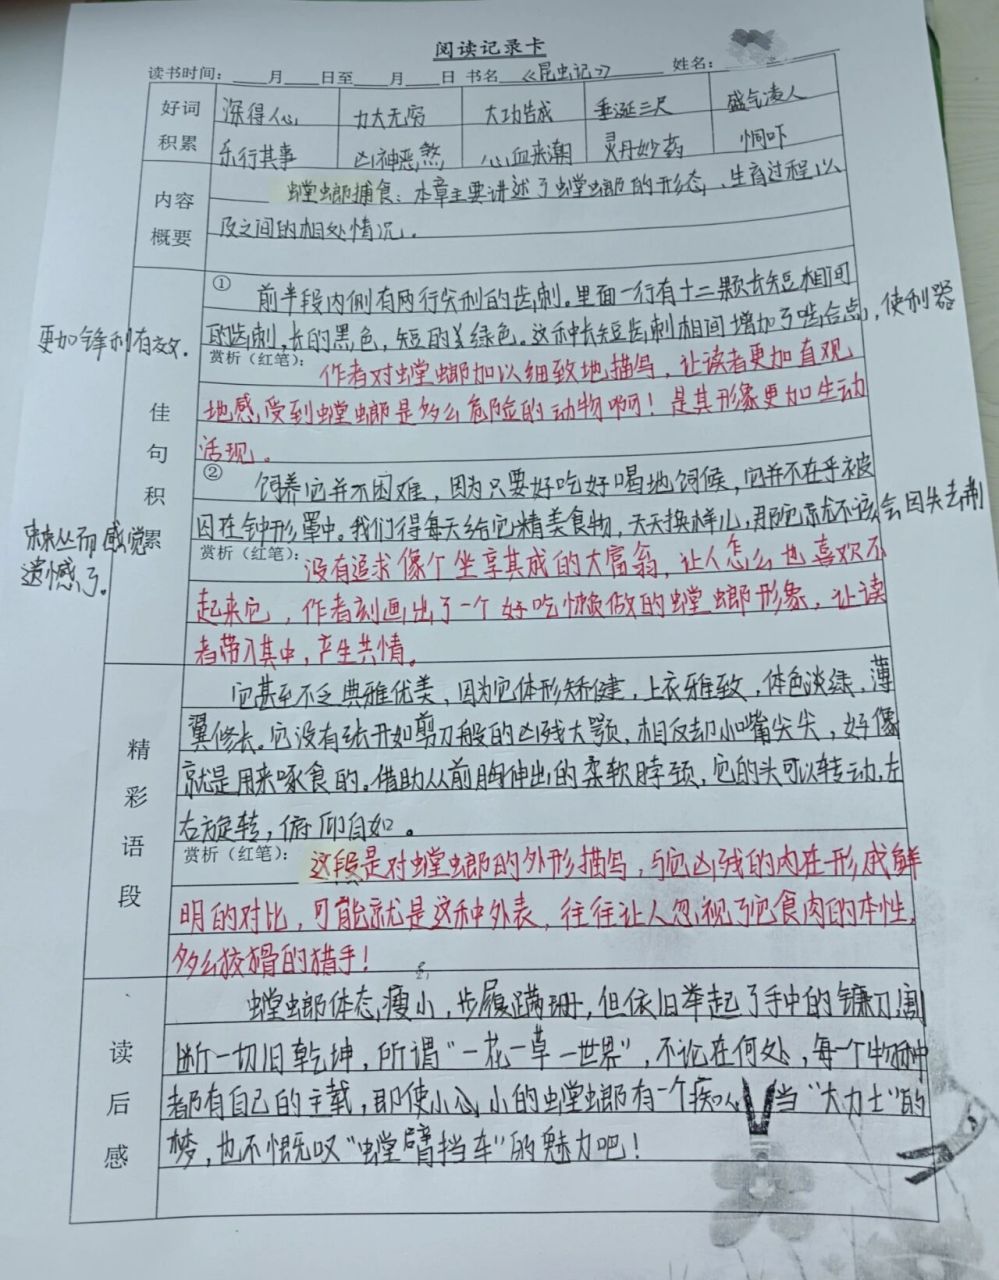 阅读记录卡
读书时间：____月____日至____月____日 书名 《昆虫记》 姓名：
好词积累
深得人心 力大无穷 大功告成 垂涎三尺 盛气凌人
乐行其事 凶神恶煞 心血来潮 灵丹妙药 恫吓
内容概要
螳螂捕食：本章主要讲述了螳螂的形态、生育过程以
及之间的相处情况。
佳句积累
① 前半段内侧有两行尖利的齿刺。里面一行有十二颗长短相间
的齿刺，长的黑色，短的绿色。这种长短齿刺相间增加了啮合点，使利器
更加锋利有效。
赏析（红笔）： 作者对螳螂加以细致地描写，让读者更加直观
地感受到螳螂是多么危险的动物啊！是其形象更加生动
活现。
② 饲养它并不困难，因为只要好吃好喝地饲候，它并不在乎被
囚在钟形罩中。我们得每天给它精美食物，天天换样儿，那它就不该会因失去荆
棘丛而感觉
遗憾了。
赏析（红笔）： 没有追求像个坐享其成的大富翁，让人怎么也喜欢不
起来它，作者刻画出了一个好吃懒做的螳螂形象，让读
者带入其中，产生共情。
精彩语段
它甚至不乏典雅优美，因为它体形矫健，上衣雅致，体色淡绿，薄
翼修长。它没有张开如剪刀般的凶残大颚，相反却小嘴尖尖，好像
就是用来啄食的。借助从前胸伸出的柔软脖颈，它的头可以转动，左
右旋转，俯仰自如。
赏析（红笔）： 这段是对螳螂的外形描写，与它凶残的内在形成鲜
明的对比，可能就是这种外表，往往让人忽视了它食肉的本性，
多么狡猾的猎手！
读后感
螳螂体态瘦小，步履蹒跚，但依旧举起了手中的镰刀，割
断一切旧乾坤，所谓“一花一草一世界”，不论在何处，每一个物种
都有自己的主载，即使小小的螳螂有一个当“大力士”的
梦，也不慨叹“螳臂挡车”的魅力吧！